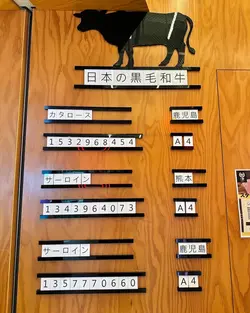 日本の黒毛和牛
カタロース 鹿児島
1532968454 A4
サーロイン 熊本
1343964073 A4
サーロイン 鹿児島
1357770660 A4